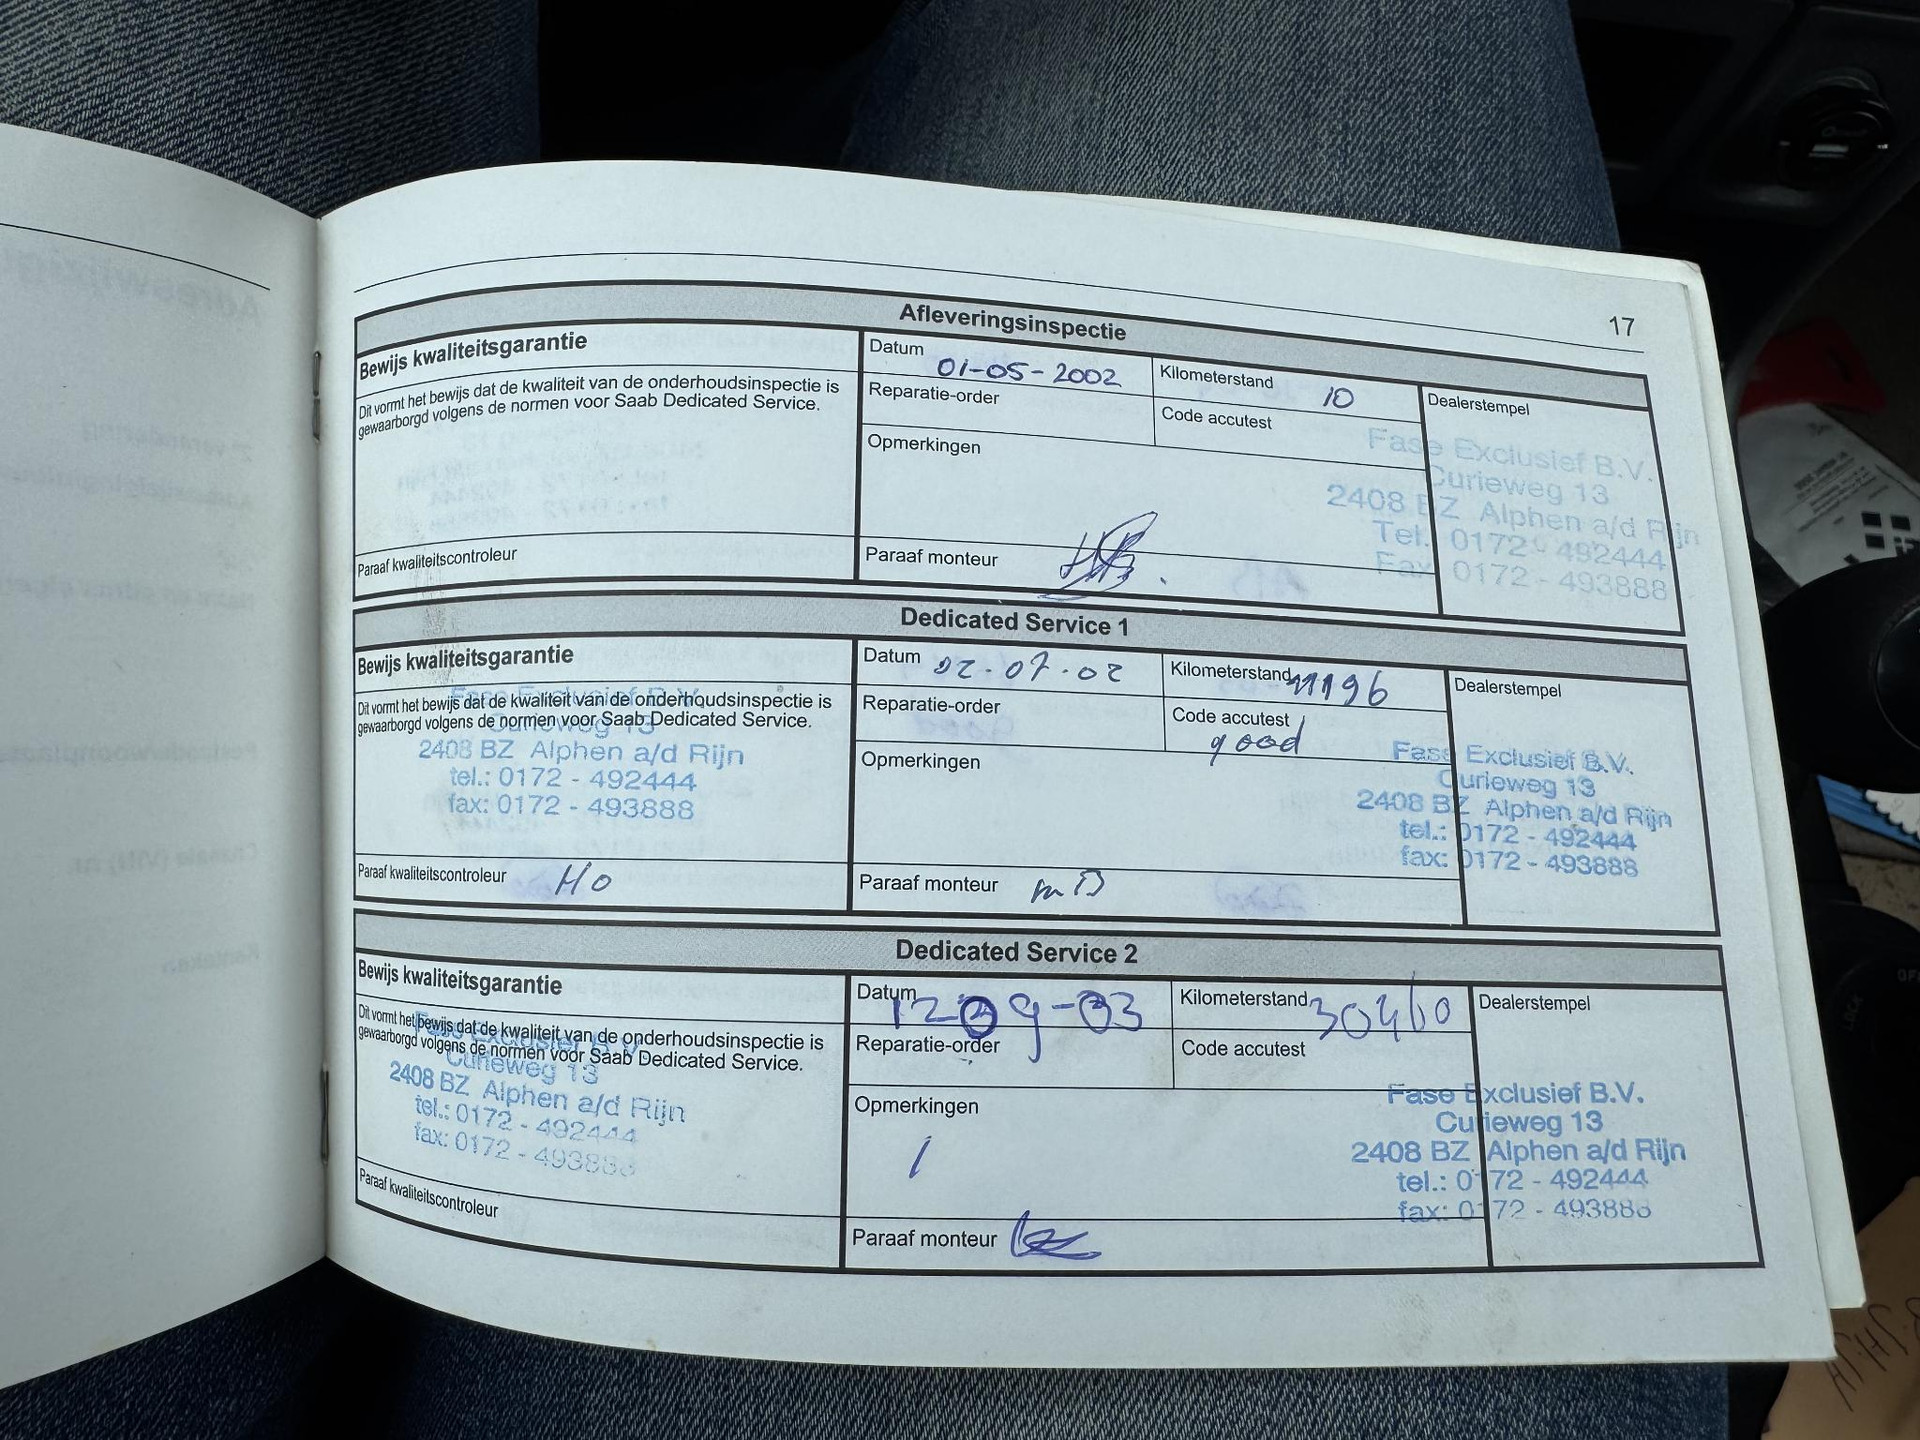 17
Afleveringsinspectie
Bewijs kwaliteitsgarantie
Dit vormt het bewijs dat de kwaliteit van de onderhoudsinspectie is
gewaarborgd volgens de normen voor Saab Dedicated Service.
Paraaf kwaliteitscontroleur
Datum 01-05-2002
Kilometerstand 10
Reparatie-order
Code accutest
Opmerkingen
Paraaf monteur
Dealerstempel
Fase Exclusief B.V.
Curieweg 13
2408 BZ Alphen a/d Rijn
Tel. 0172 - 492444
Fax 0172 - 493888
Dedicated Service 1
Bewijs kwaliteitsgarantie
Dit vormt het bewijs dat de kwaliteit van de onderhoudsinspectie is
gewaarborgd volgens de normen voor Saab Dedicated Service.
Fase Exclusief B.V.
Curieweg 13
2408 BZ Alphen a/d Rijn
tel.: 0172 - 492444
fax: 0172 - 493888
Paraaf kwaliteitscontroleur HO
Datum 02-07-02
Kilometerstand 11196
Reparatie-order
Code accutest
good
Opmerkingen
Paraaf monteur mB
Dealerstempel
Fase Exclusief B.V.
Curieweg 13
2408 BZ Alphen a/d Rijn
tel.: 0172 - 492444
fax: 0172 - 493888
Dedicated Service 2
Bewijs kwaliteitsgarantie
Dit vormt het bewijs dat de kwaliteit van de onderhoudsinspectie is
gewaarborgd volgens de normen voor Saab Dedicated Service.
Fase Exclusief B.V.
Curieweg 13
2408 BZ Alphen a/d Rijn
tel.: 0172 - 492444
fax: 0172 - 493888
Paraaf kwaliteitscontroleur
Datum
Kilometerstand 30460
Reparatie-order
Code accutest
Opmerkingen
/
Paraaf monteur
Dealerstempel
Fase Exclusief B.V.
Curieweg 13
2408 BZ Alphen a/d Rijn
tel.: 0172 - 492444
fax: 0172 - 493888